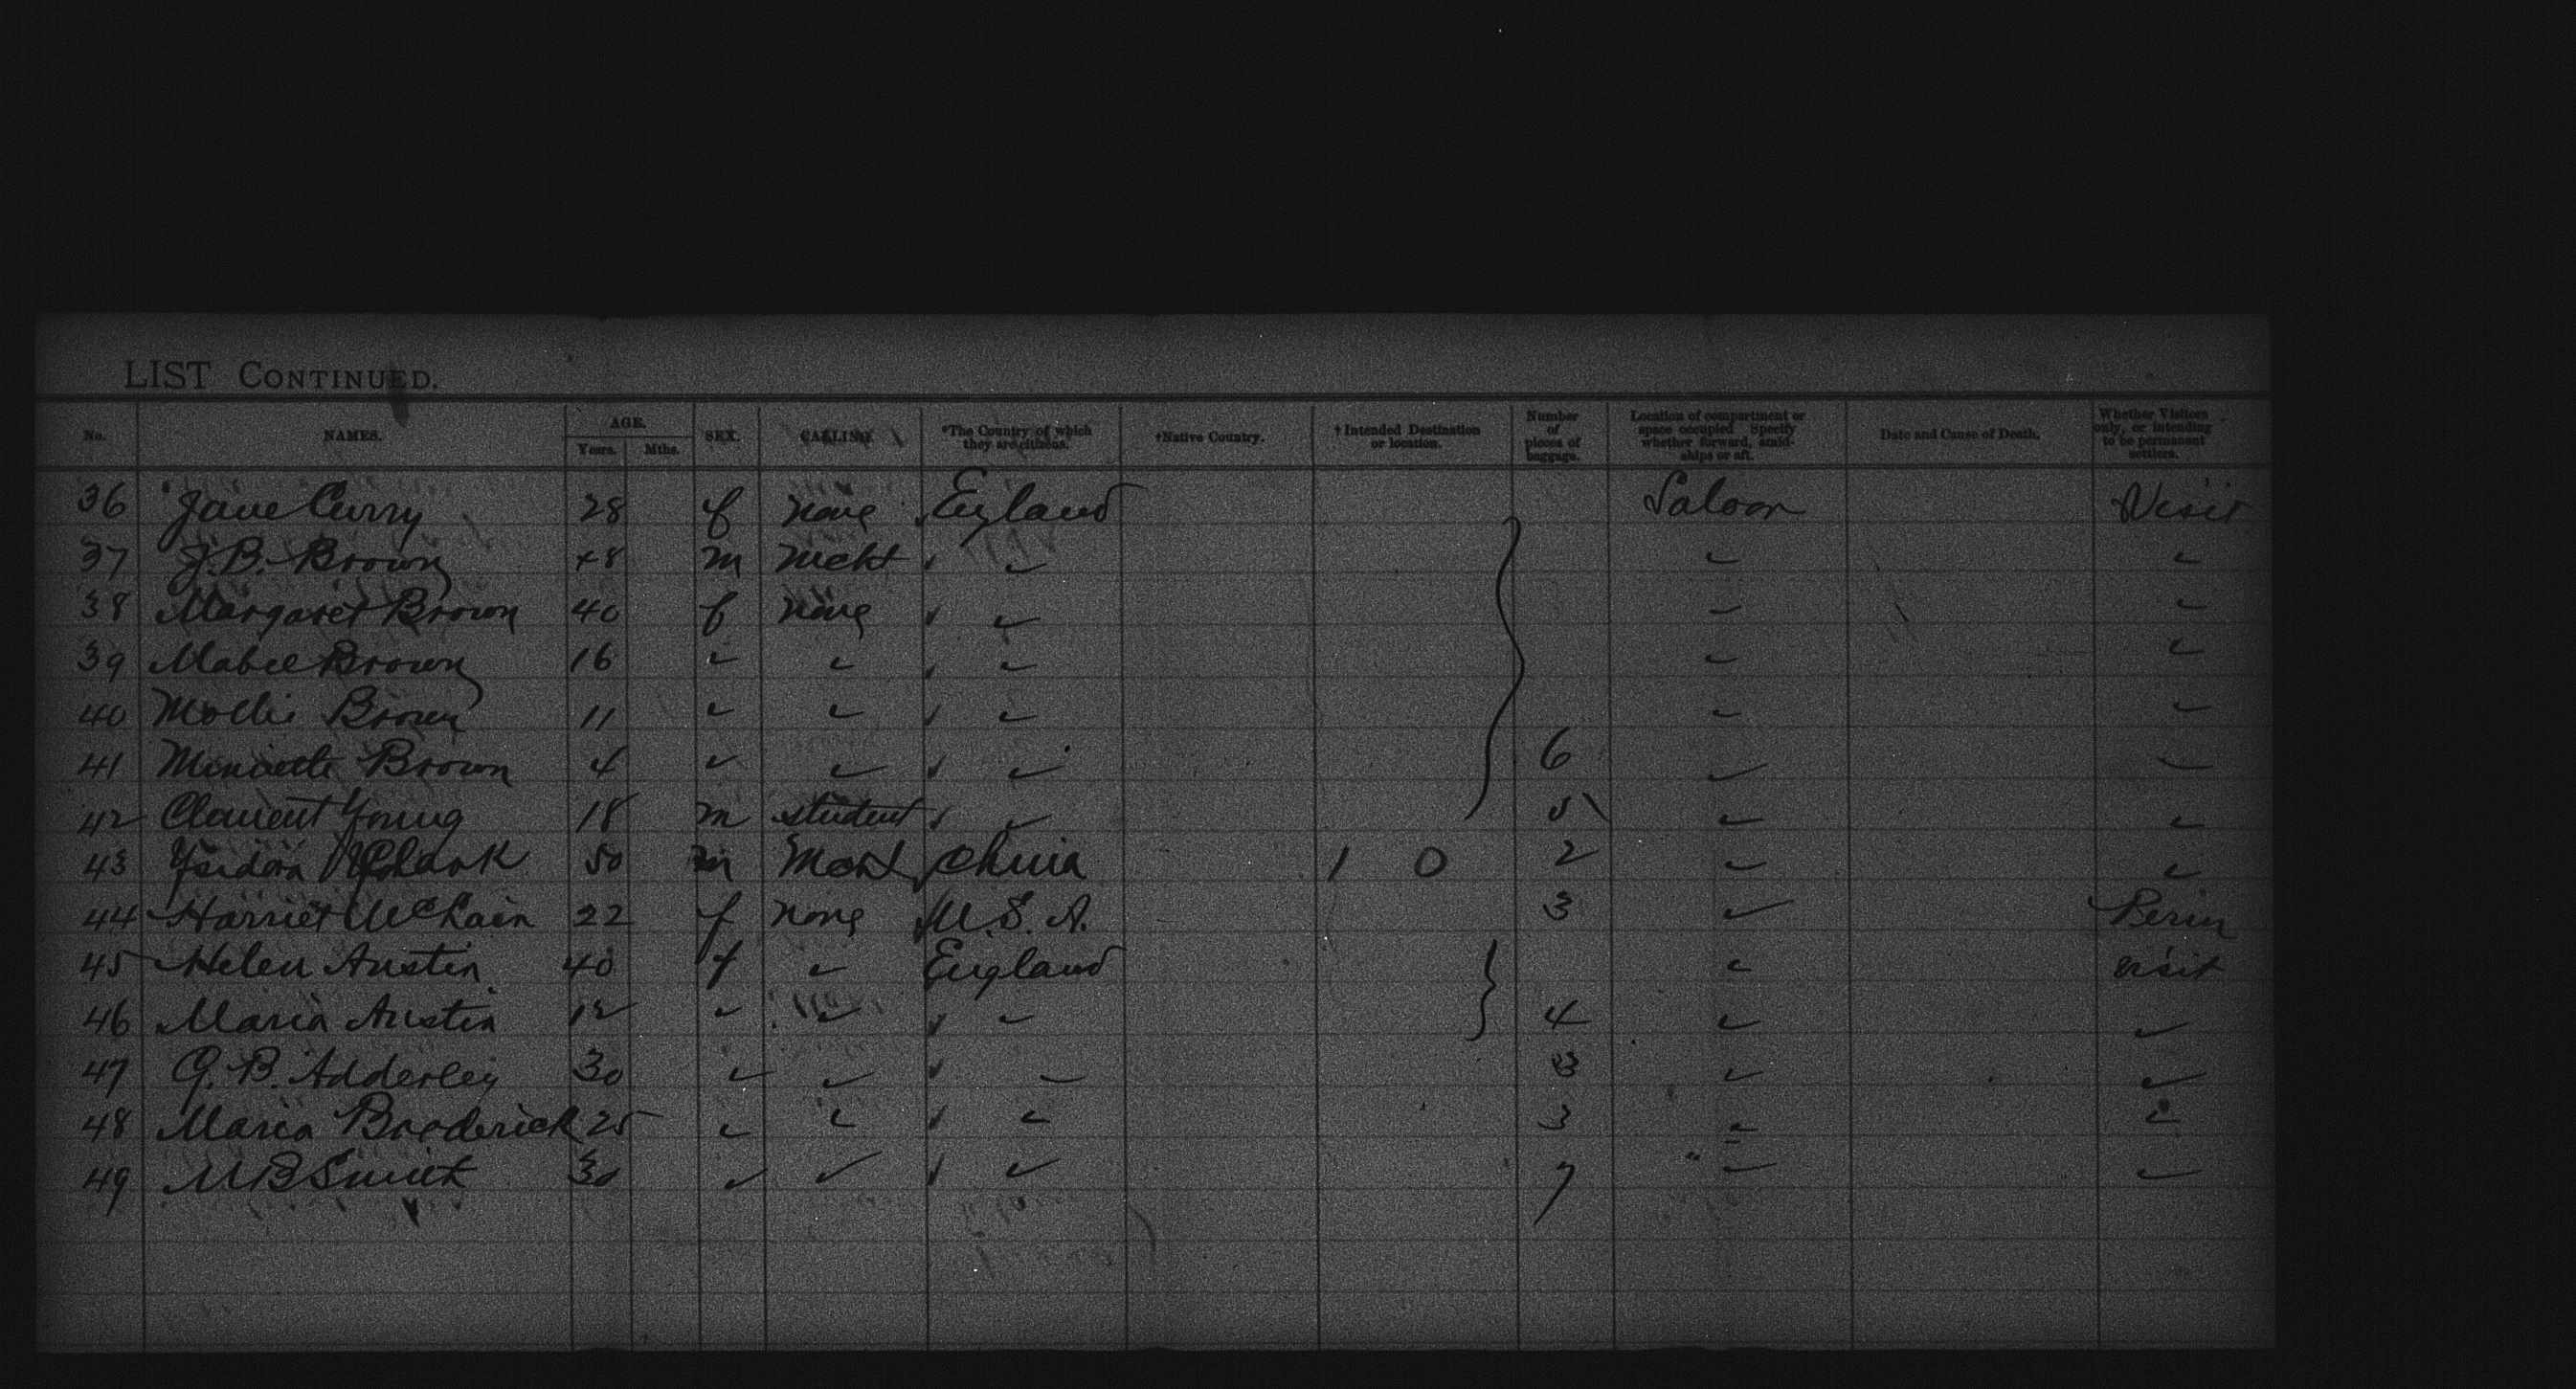 LIST CONTINUED.
No. NAMES. AGE. Years. Mths. SEX. CALLING. *The Country of which they are citizens. †Native Country. †Intended Destination or location. Number of pieces of baggage. Location of compartment or space occupied Specify whether forward, amidships or aft. Date and Cause of Death. Whether Visitors only, or intending to be permanent settlers.
36 Jane Curry 28 f none England Saloon Visit
37 J.B. Brown 48 m mcht
38 Margaret Brown 40 f none
39 Mabel Brown 16
40 Mollie Brown 11
41 Brown 4 6
42 Clement Young 18 m student 5
43 50 m China 1 0 2
44 Harriet McLain 22 f none U.S.A. 3
45 Helen Austin 40 f England visit
46 Maria Austin 12 4
47 G.B. Adderley 30 3
48 Maria Broderick 25 3
49 M B Smith 30 7